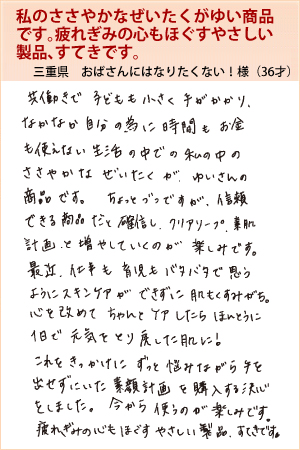 私のささやかなぜいたくがゆい商品
です。疲れぎみの心もほぐすやさしい
製品、すてきです。
三重県　おばさんにはなりたくない！様（36才）
共働きで 子どもも小さく 手がかかり、
なかなか自分の為に時間も お金
も使えない 生活の中での 私の中の
ささやかな ぜいたく が、ゆいさんの
商品 です。 ちょっとづつですが、信頼
できる商品 だと 確信し、クリアソープ、素肌
計画 と 増やしていくのが 楽しみです。
最近、仕事も 育児も バタバタで 思う
ようにスキンケアが できずに 肌もくすみがち。
心を改めて ちゃんと ケア したら ほんとうに
1日で 元気をとり戻した肌に！
これをきっかけに ずっと 悩みながら 手を
出せずにいた 素顔計画 を 購入する 決心
をしました。 今から 使うのが 楽しみです。
疲れぎみの心も ほぐす やさしい 製品、すてきです。